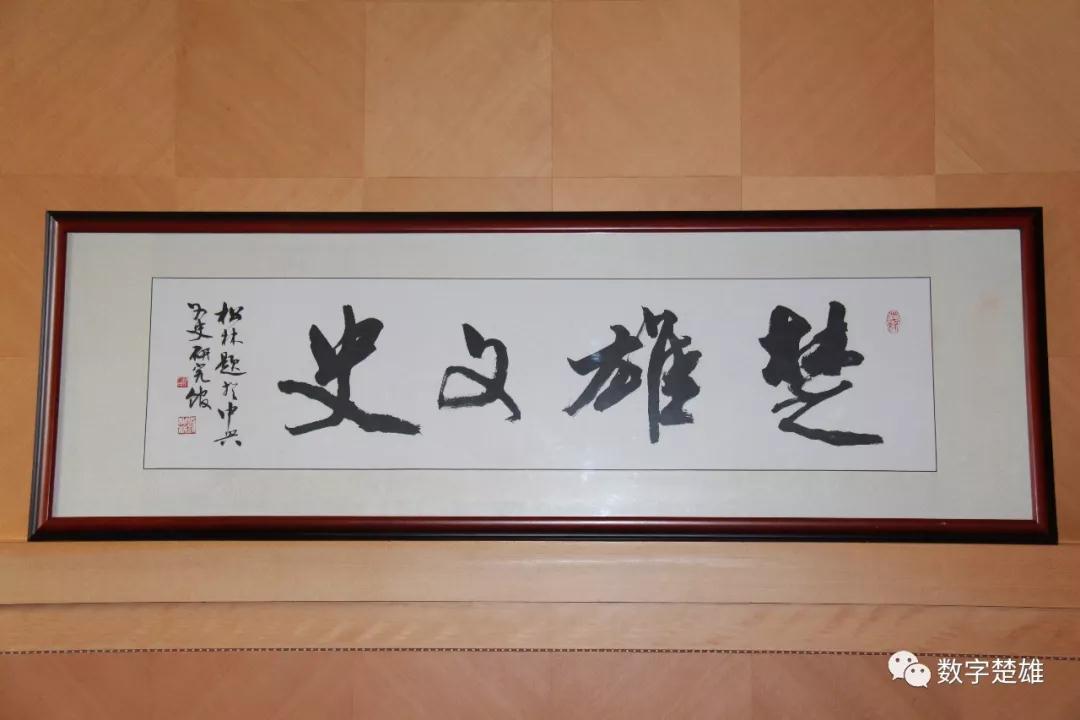 楚雄文史
松林题於中兴
文史研究馆
数字楚雄